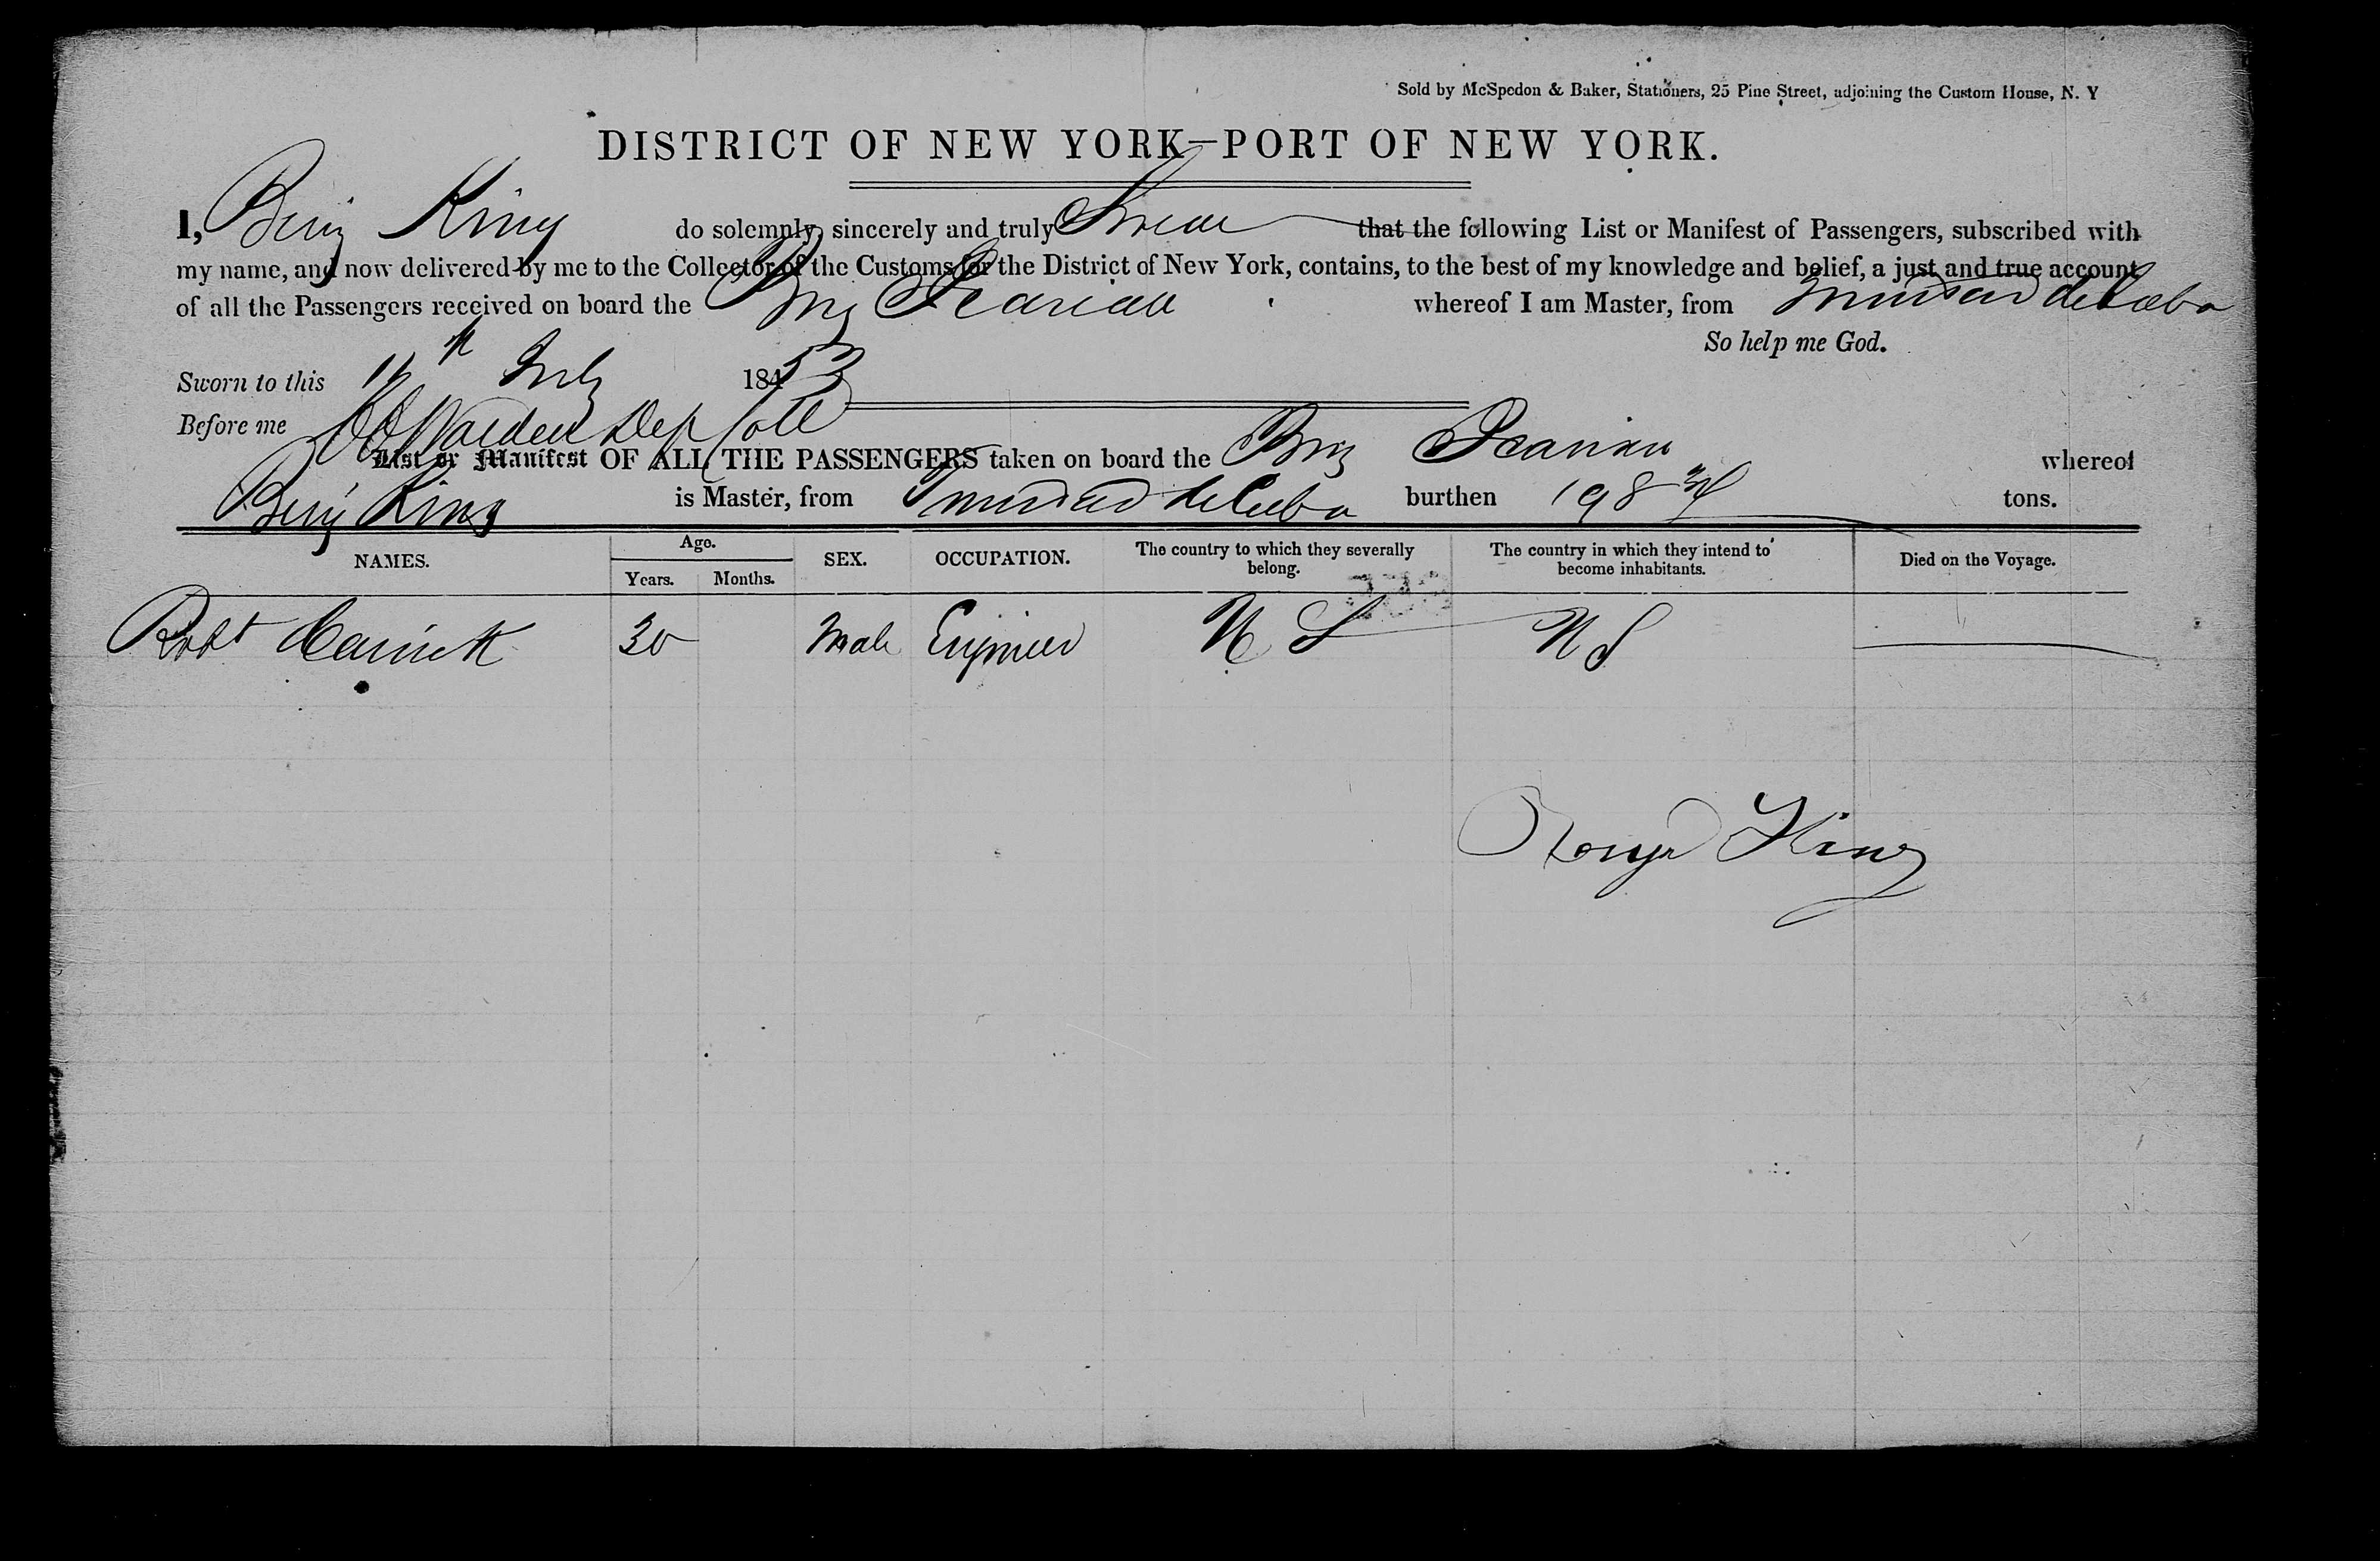 Sold by McSpedon & Baker, Stationers, 25 Pine Street, adjoining the Custom House, N. Y
DISTRICT OF NEW YORK—PORT OF NEW YORK.
I, Benj King do solemnly, sincerely and truly Swear that the following List or Manifest of Passengers, subscribed with
my name, and now delivered by me to the Collector of the Customs for the District of New York, contains, to the best of my knowledge and belief, a just and true account
of all the Passengers received on board the Brig whereof I am Master, from Trinidad de Cuba
So help me God.
Sworn to this July 1853
Before me Dep Coll
List or Manifest OF ALL THE PASSENGERS taken on board the Brig whereof
Benj King is Master, from Trinidad de Cuba burthen 198 tons.
NAMES. Age. SEX. OCCUPATION. The country to which they severally belong. The country in which they intend to become inhabitants. Died on the Voyage.
Years. Months.
Robt 30 Male Engineer U S U S
Benjn King